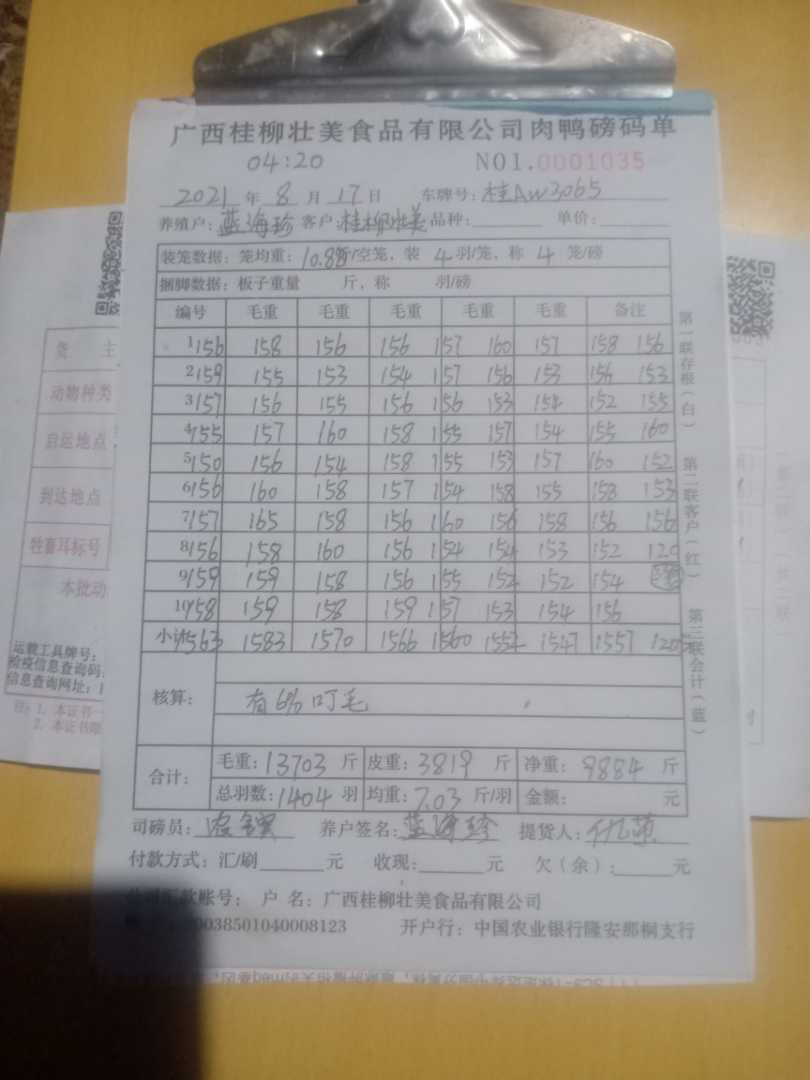 广西桂柳壮美食品有限公司肉鸭磅码单
04:20 NO1.0001035
2021年8月17日 车牌号:桂AW3065
养殖户:蓝海珍 客户:桂柳壮美 品种: 单价:
装笼数据:笼均重:10.88斤/空笼、装4羽/笼、称4笼/磅
捆脚数据:板子重量 斤,称 羽/磅
编号 毛重 毛重 毛重 毛重 毛重 备注
1 156 158 156 156 157 160 157 158 156
2 159 155 153 154 157 156 153 156 153
3 157 156 155 156 156 153 154 152 155
4 155 157 160 158 155 157 154 155 160
5 150 156 154 158 155 153 157 160 152
6 156 160 158 157 154 158 155 158 153
7 157 165 158 156 160 156 158 156 156
8 156 158 160 156 154 154 153 152 120
9 159 159 158 156 155 152 152 154
10 158 159 158 159 157 153 154 156
小计 1563 1583 1570 1566 1560 1552 1547 1557 1205
核算: 有6%叮毛
合计: 毛重:13703斤 皮重:3819斤 净重:9884斤
总羽数:1404羽 均重:7.03斤/羽 金额: 元
司磅员: 养户签名:蓝海珍 提货人:
付款方式:汇/刷 元 收现: 元 欠(余): 元
汇款账号: 户 名:广西桂柳壮美食品有限公司
00038501040008123 开户行:中国农业银行隆安那桐支行
第一联存根(白)
第二联客户(红)
第三联会计(蓝)
货 主
动物种类
启运地点
到达地点
牲畜耳标号
本批动
运载工具牌号:
检疫信息查询码:
信息查询网址:
注:1. 本证书一
2. 本证书限